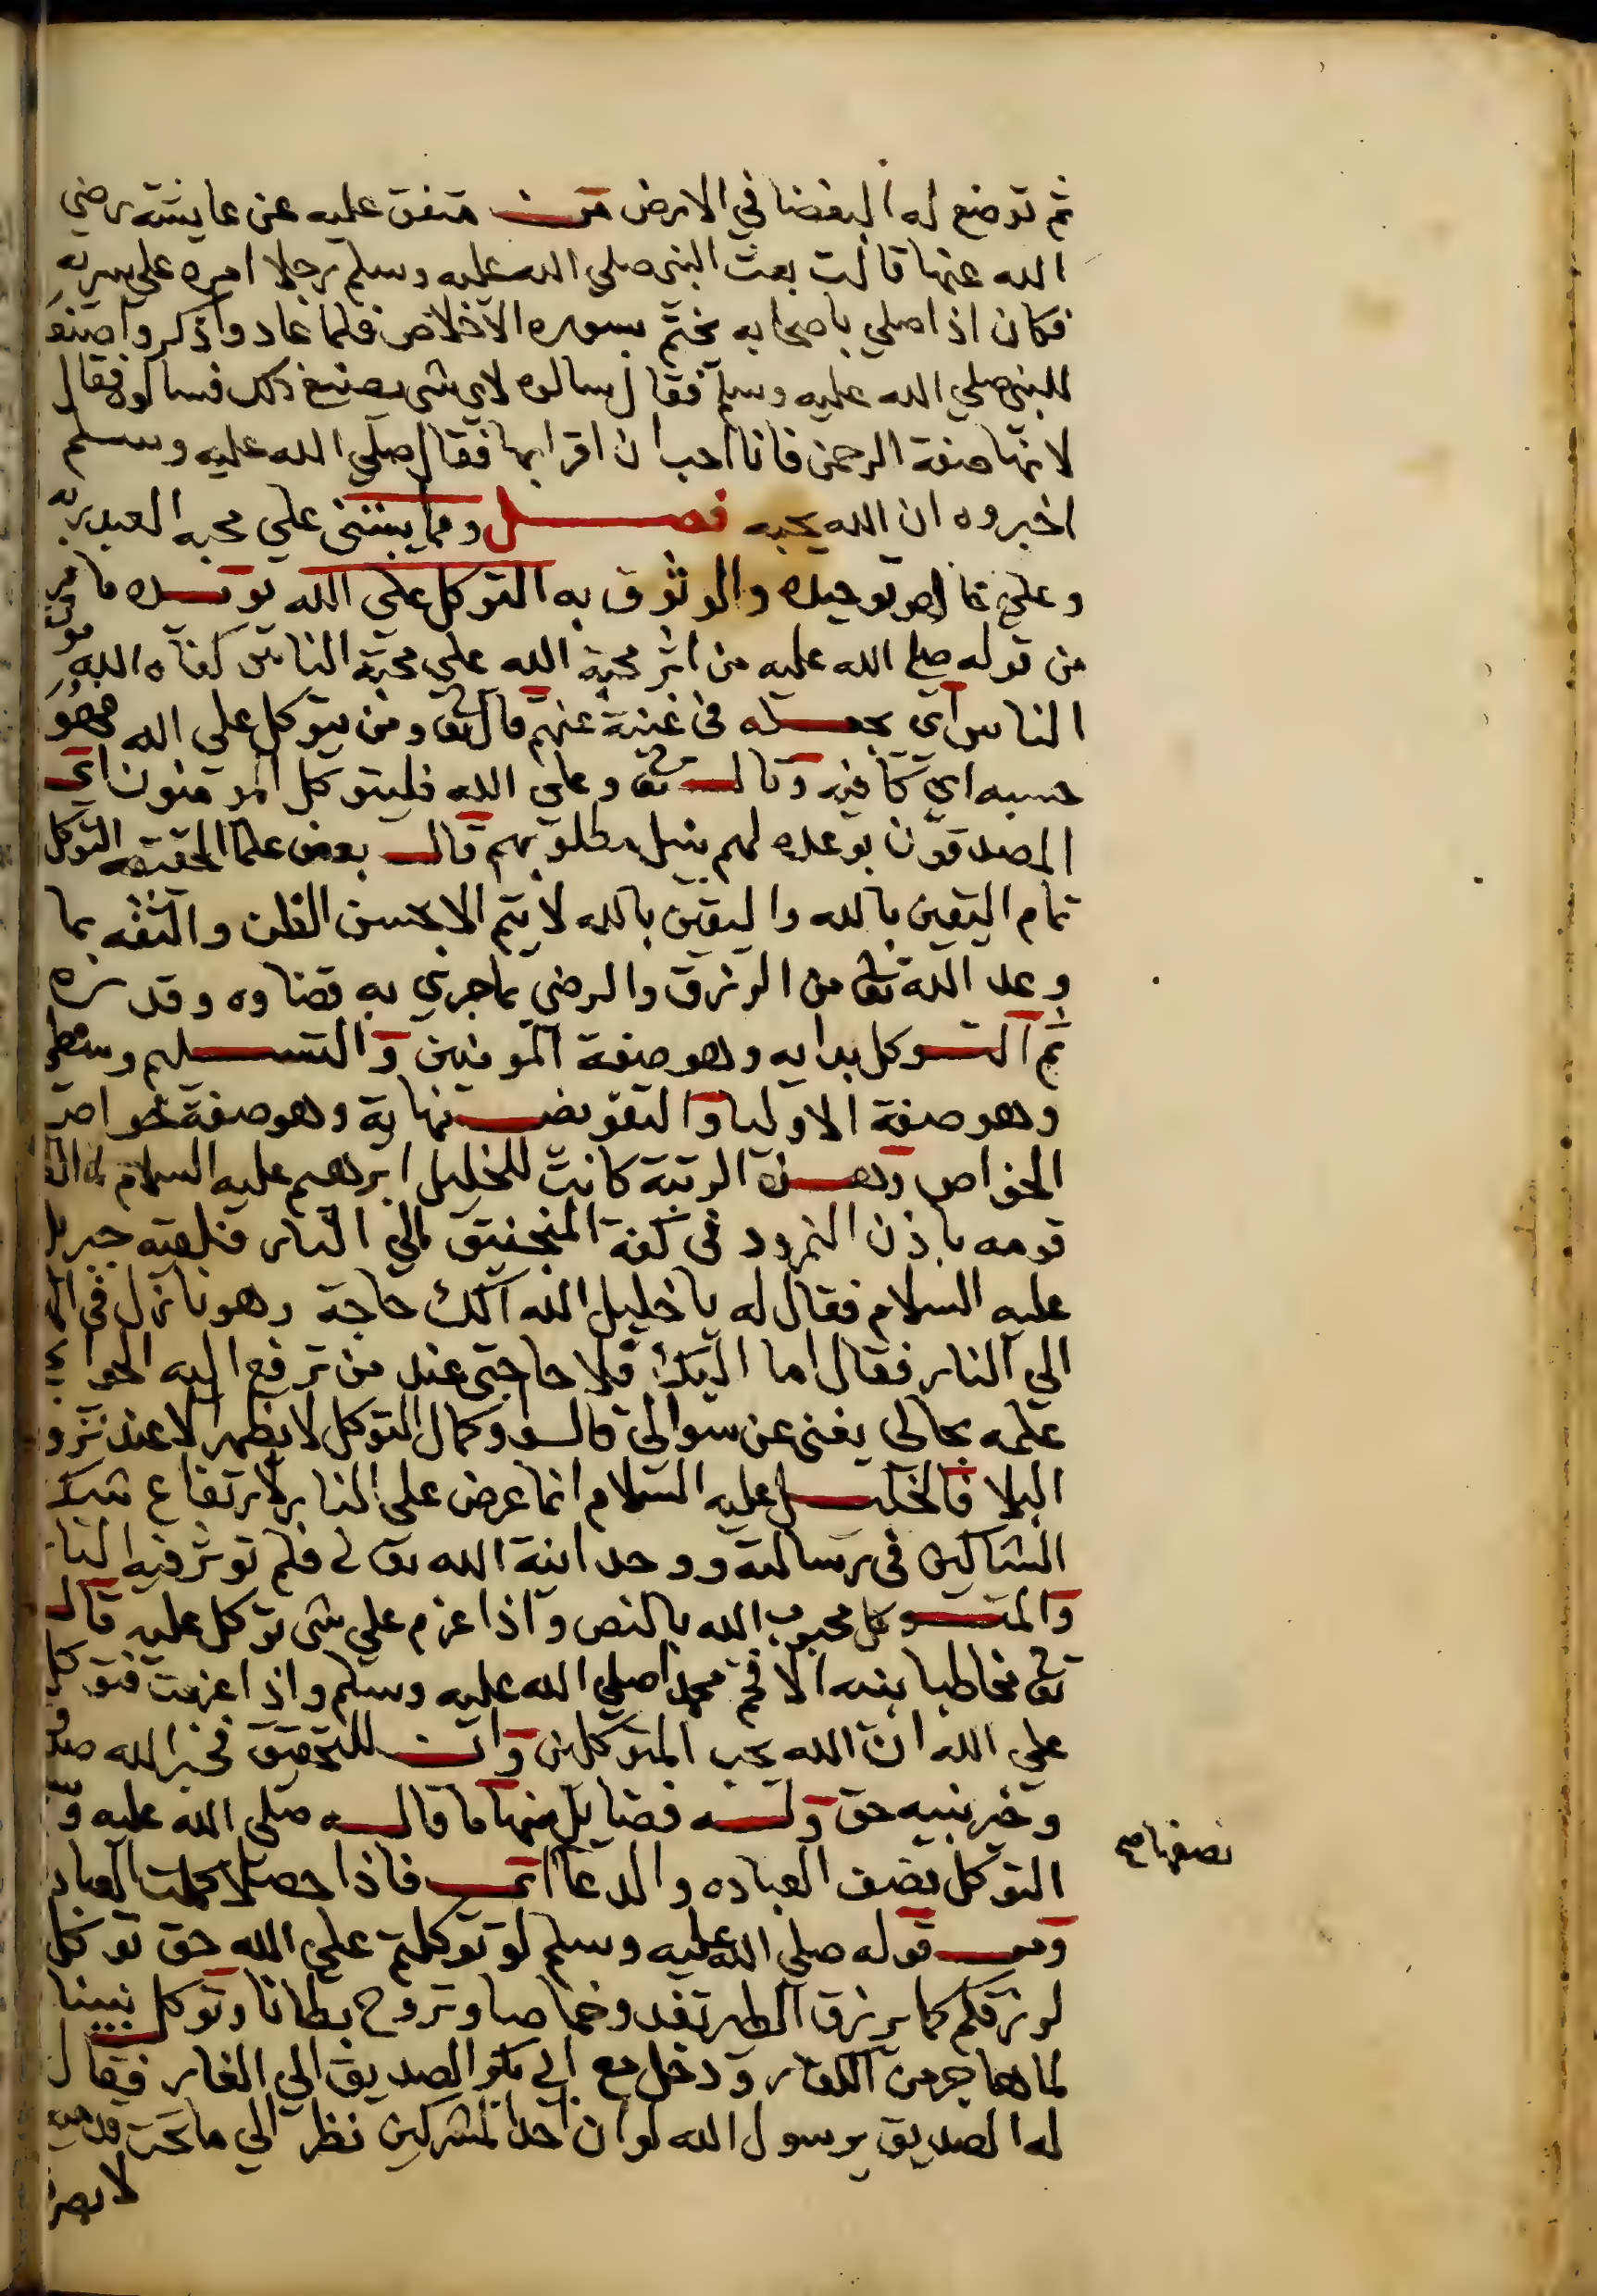 ثم توضع له البغضا في الارض متفق عليه عن عايشة رضي
الله عنها قالت بعث النبي صلى الله عليه وسلم رجلا امره على سريه
فكان اذا صلي باصحابه يختم بسوره الاخلاص فلما عاد واذكر واصنعه
للنبي صلي الله عليه وسلم فقال سالوه لاي شي يصنع ذلك فسالوه فقال
لانها صفة الرحمن فانا احب ان اقرا بها فقال صلي الله عليه وسلم
اخبروه ان الله يحبه فصل ومما يبتني علي محبه العبد ربه
وعلي توحيده والوثوق به التوكل علي الله يويده ما مر
من قوله صلى الله عليه من اثر محبة الله علي محبة الناس كفاه الله مونة
الناس اي يجعله في غنية عنهم قال تعا ومن يتوكل علي الله فهو
حسبه اي كافيه وقال تعا وعلي الله فليتوكل المومنون اي
المصدقون بوعده لهم بنيل مطلوبهم قال بعض علما الحقيقه التوكل
تمام اليقين بالله واليقين بالله لا يتم الا بحسن الظن والثقه بما
وعد الله تعا من الرزق والرضي بما جري به قضاوه وقدره
ثم التوكل بدايه وهو صفة المومنين والتسليم وسطي
وهو صفة الاوليا والتفويض نهاية وهو صفة خواص
الخواص وهذه الرتبة كانت للخليل ابرهيم عليه السلام لما القا
قومه باذن النمرود في كفة المنجنيق الي النار فلقيه جبريل
عليه السلام فقال له يا خليل الله الك حاجة وهو نازل في
الي النار فقال اما اليك فلا حاجتي عند من ترفع اليه الحوايج
علمه بحالي يغني عن سوالي قالوا وكمال التوكل لا يظهر الا عند نزو
البلا فالخليل عليه السلام انما عرض علي النار لارتفاع شك
الشاكين في رسالته ووحدانية الله تعالى فلم توثر فيه النار
والمتوكل محبوب الله بالنص واذا عزم علي شي توكل عليه قال
تعا مخاطبا نبيه الافخم محمدا صلي الله عليه وسلم واذا عزمت فتوكل
علي الله ان الله يحب المتوكلين وان للتحقيق فخبر الله صدق
وخبر نبيه حق وله فضايل منها ما قاله صلى الله عليه و
التوكل نصف العباده والدعا فاذا حصلا كملت العباد
قوله صلي الله عليه وسلم لو توكلتم علي الله حق توكل
لرزقكم كما يرزق الطير تغدو خماصا وتروح بطانا وتوكل نبينا
لما هاجر من الكفار ودخل مع ابي بكر الصديق الي الغار فقال
له الصديق يرسول الله لو ان احد المشركين نظر الي ما تحت قدميه
لابصر
نصفها صح